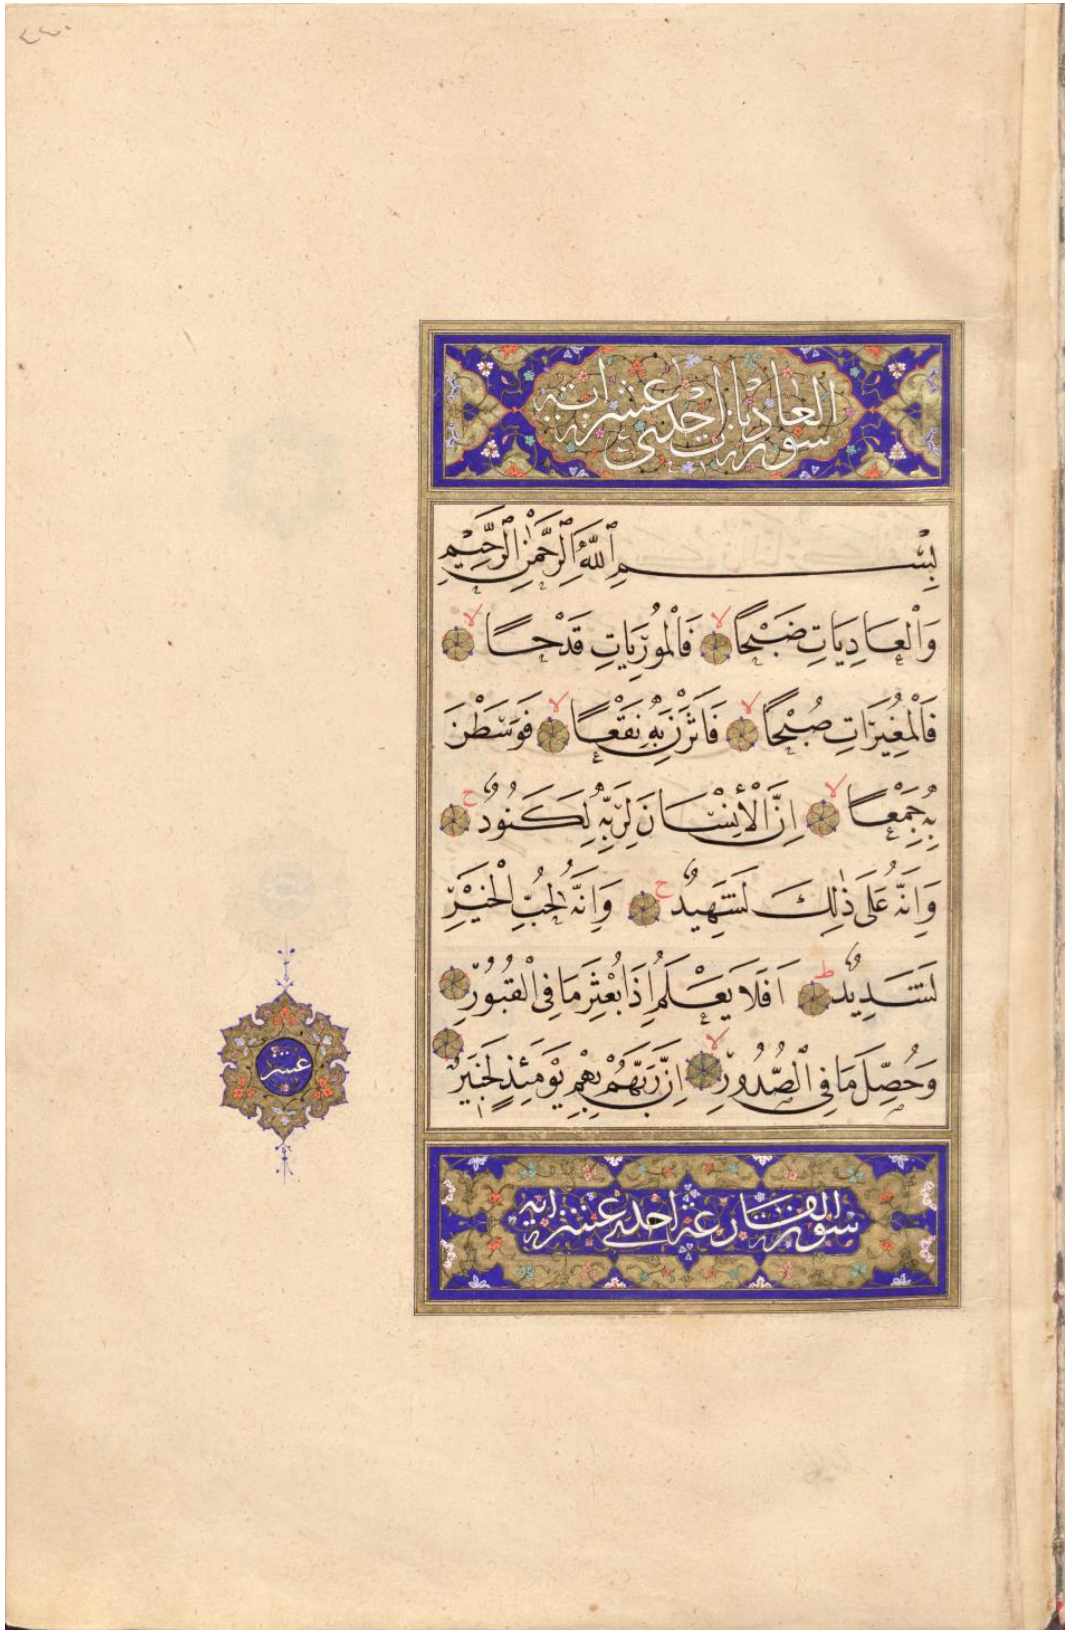 ٤٤٠
سورة العاديات احدى عشر اية
بِسْمِ ٱللَّهِ ٱلرَّحْمَٰنِ ٱلرَّحِيمِ
وَالْعَادِيَاتِ ضَبْحًا لا فَالْمُورِيَاتِ قَدْحًا لا
فَالْمُغِيرَاتِ صُبْحًا لا فَاَثَرْنَ بِهِ نَقْعًا لا فَوَسَطْنَ
بِهِ جَمْعًا لا اِنَّ الْأِنْسَانَ لِرَبِّهِ لَكَنُودٌ ح
وَاِنَّهُ عَلَى ذٰلِكَ لَشَهِيدٌ ح وَاِنَّهُ لِحُبِّ الْخَيْرِ
لَشَدِيدٌ ط اَفَلَا يَعْلَمُ اِذَا بُعْثِرَ مَا فِي الْقُبُورِ
وَحُصِّلَ مَا فِي ٱلصُّدُورِ لا اِنَّ رَبَّهُمْ بِهِمْ يَوْمَئِذٍ لَخَبِيرٌ
عشر
سورة القارعة احدى عشر اية